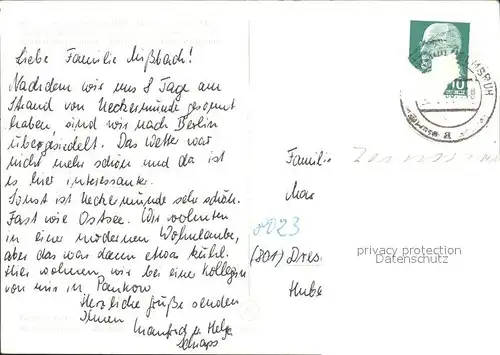 Liebe Familie Mißbach!
Nachdem wir uns 8 Tage am
Strand von Ueckermünde gesonnt
haben, sind wir nach Berlin
übergesiedelt. Das Wetter war
nicht mehr schön und da ist
es hier interessanter.
Sonst ist Ueckermünde sehr schön.
Fast wie Ostsee. Wir wohnten
in einer modernen Wohnlaube,
aber das war dann etwas kühl.
Hier wohnen wir bei einer Kollegin
von mir in Pankow
Herzliche Grüße senden
Ihnen
Manfred u. Helga
10
Familie
Mar
8023
(801) Dres
Hube
privacy protection
Datenschutz